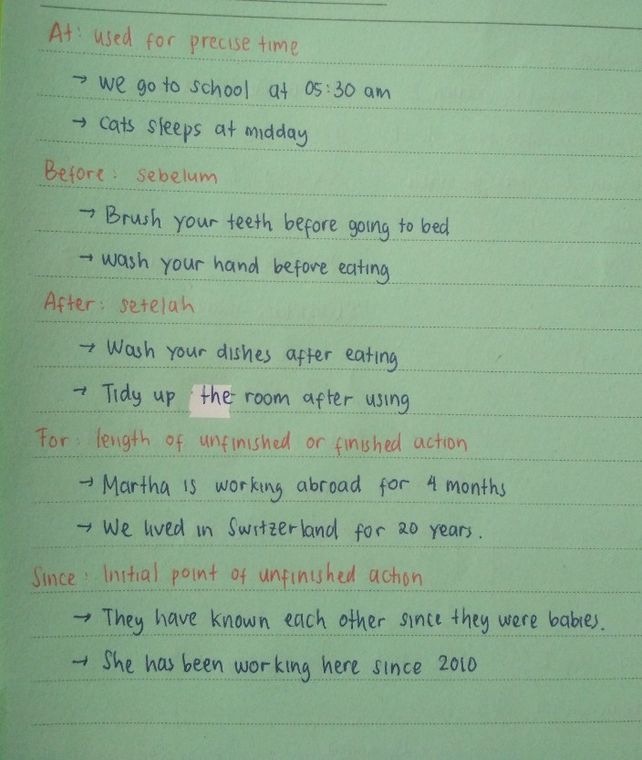 At : used for precise time
→ We go to school at 05:30 am
→ Cats sleeps at midday
Before : sebelum
→ Brush your teeth before going to bed
→ Wash your hand before eating
After : setelah
→ Wash your dishes after eating
→ Tidy up the room after using
For : length of unfinished or finished action
→ Martha is working abroad for 4 months
→ We lived in Switzerland for 20 years.
Since : Initial point of unfinished action
→ They have known each other since they were babies.
→ She has been working here since 2010